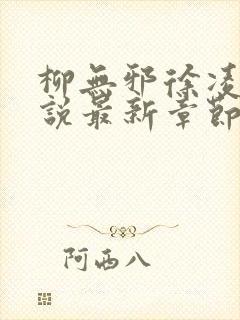 柳無邪徐凌
說最新章節
阿西八